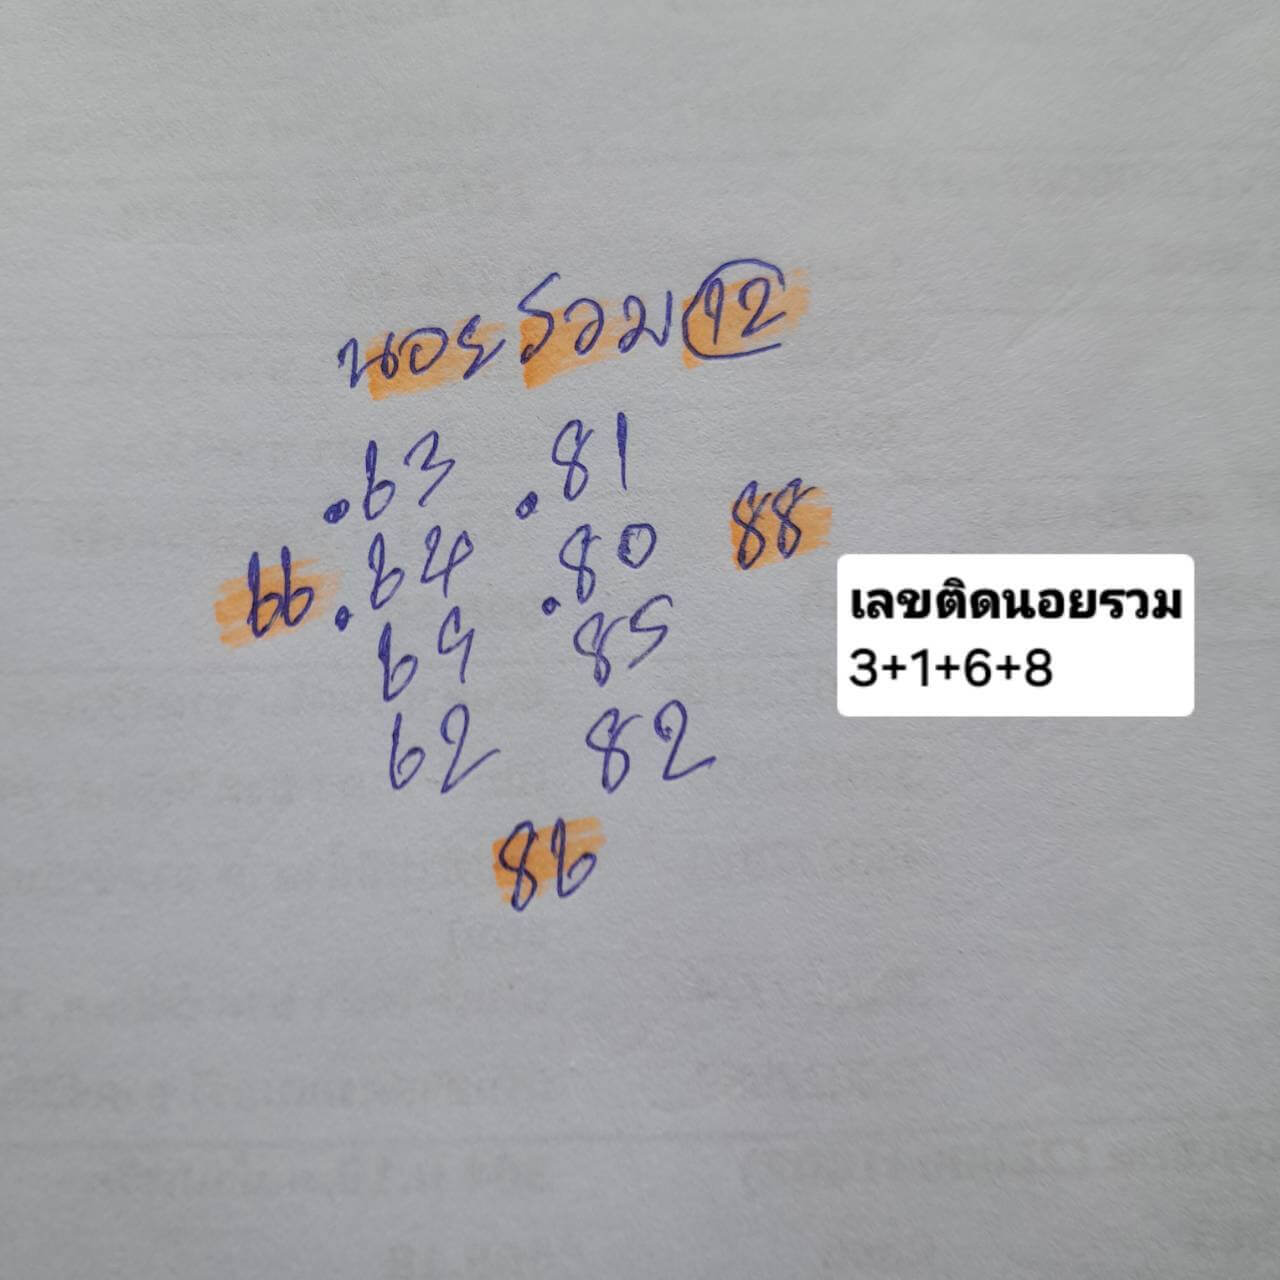 นอยรวม 12
.63 .81
88
66 .64 .80
69 85
62 82
86
เลขติดนอยรวม
3+1+6+8